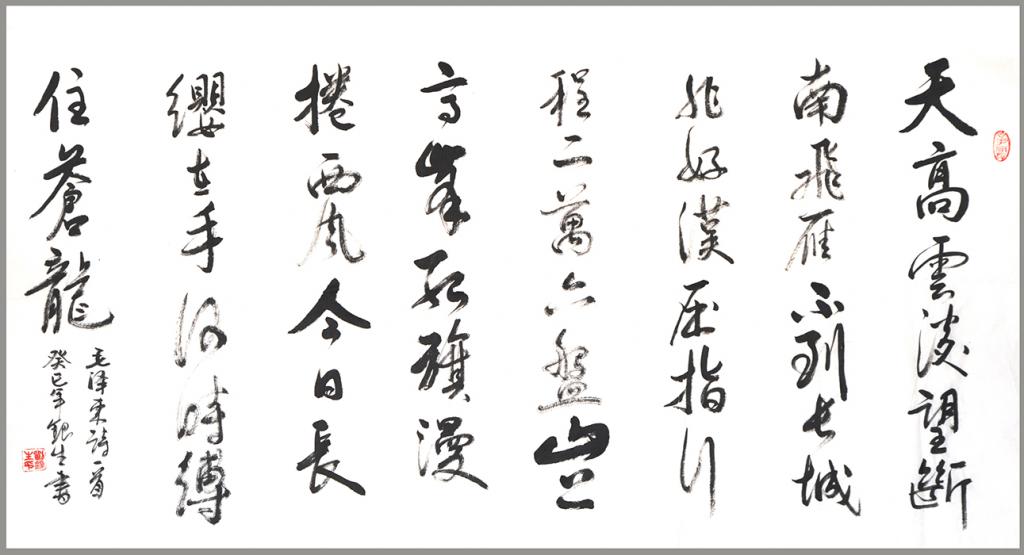 天高雲淡望斷
南飛雁不到長城
非好漢屈指行
程二萬六盤山上
高峰紅旗漫
捲西風今日長
纓在手何時縛
住蒼龍
毛澤東詩一首
癸巳年銀生書